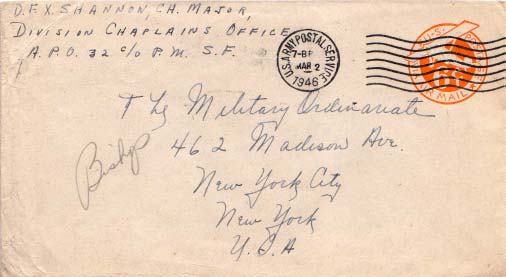 D.F.X. SHANNON, CH. MAJOR,
DIVISION CHAPLAINS OFFICE
A.P.O. 32 c/o P.M. S.F.
U.S. ARMY POSTAL SERVICE
MAR 2
1946
U.S. POSTAGE
AIR MAIL
The Military Ordinariate
462 Madison Ave.
New York City
New York
U.S.A
Bishop